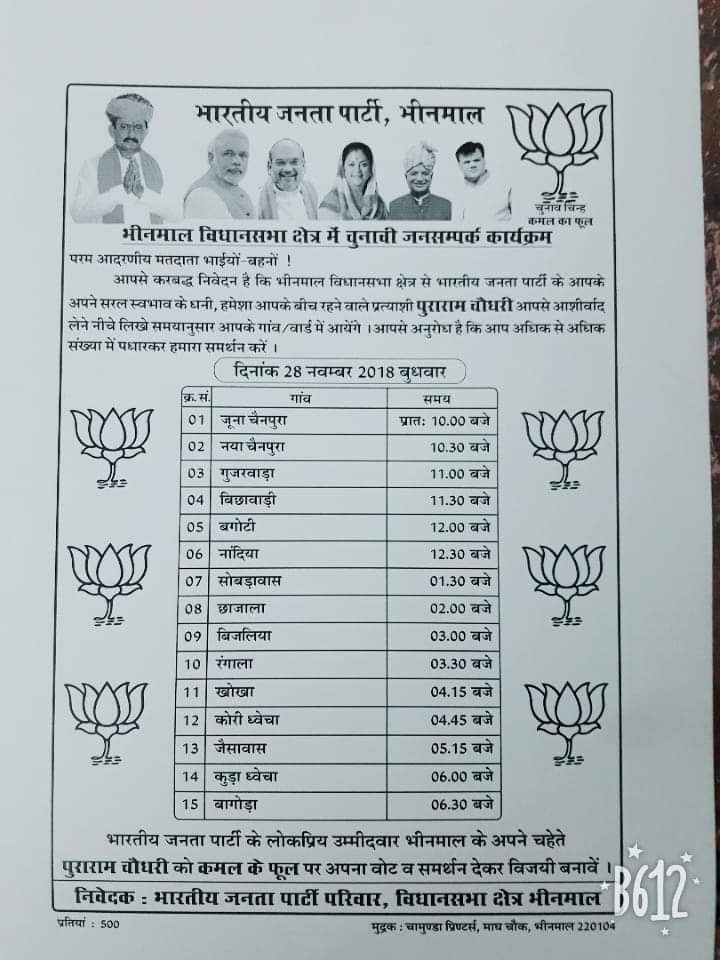 भारतीय जनता पार्टी, भीनमाल
चुनाव चिन्ह
कमल का फूल
भीनमाल विधानसभा क्षेत्र में चुनावी जनसम्पर्क कार्यक्रम
परम आदरणीय मतदाता भाईयों-बहनों !
आपसे करबद्ध निवेदन है कि भीनमाल विधानसभा क्षेत्र से भारतीय जनता पार्टी के आपके
अपने सरल स्वभाव के धनी, हमेशा आपके बीच रहने वाले प्रत्याशी पुराराम चौधरी आपसे आशीर्वाद
लेने नीचे लिखे समयानुसार आपके गांव/वार्ड में आयेंगे । आपसे अनुरोध है कि आप अधिक से अधिक
संख्या में पधारकर हमारा समर्थन करें ।
दिनांक 28 नवम्बर 2018 बुधवार
क्र.सं. गांव समय
01 जूना चैनपुरा प्रात: 10.00 बजे
02 नया चैनपुरा 10.30 बजे
03 गुजरवाड़ा 11.00 बजे
04 बिछावाड़ी 11.30 बजे
05 बगोटी 12.00 बजे
06 नांदिया 12.30 बजे
07 सोबड़ावास 01.30 बजे
08 छाजाला 02.00 बजे
09 बिजलिया 03.00 बजे
10 रंगाला 03.30 बजे
11 खोखा 04.15 बजे
12 कोरी ध्वेचा 04.45 बजे
13 जैसावास 05.15 बजे
14 कुड़ा ध्वेचा 06.00 बजे
15 बागोड़ा 06.30 बजे
भारतीय जनता पार्टी के लोकप्रिय उम्मीदवार भीनमाल के अपने चहेते
पुराराम चौधरी को कमल के फूल पर अपना वोट व समर्थन देकर विजयी बनावें ।
निवेदक : भारतीय जनता पार्टी परिवार, विधानसभा क्षेत्र भीनमाल
प्रतियां : 500 मुद्रक : चामुण्डा प्रिण्टर्स, माघ चौक, भीनमाल 220104
B612